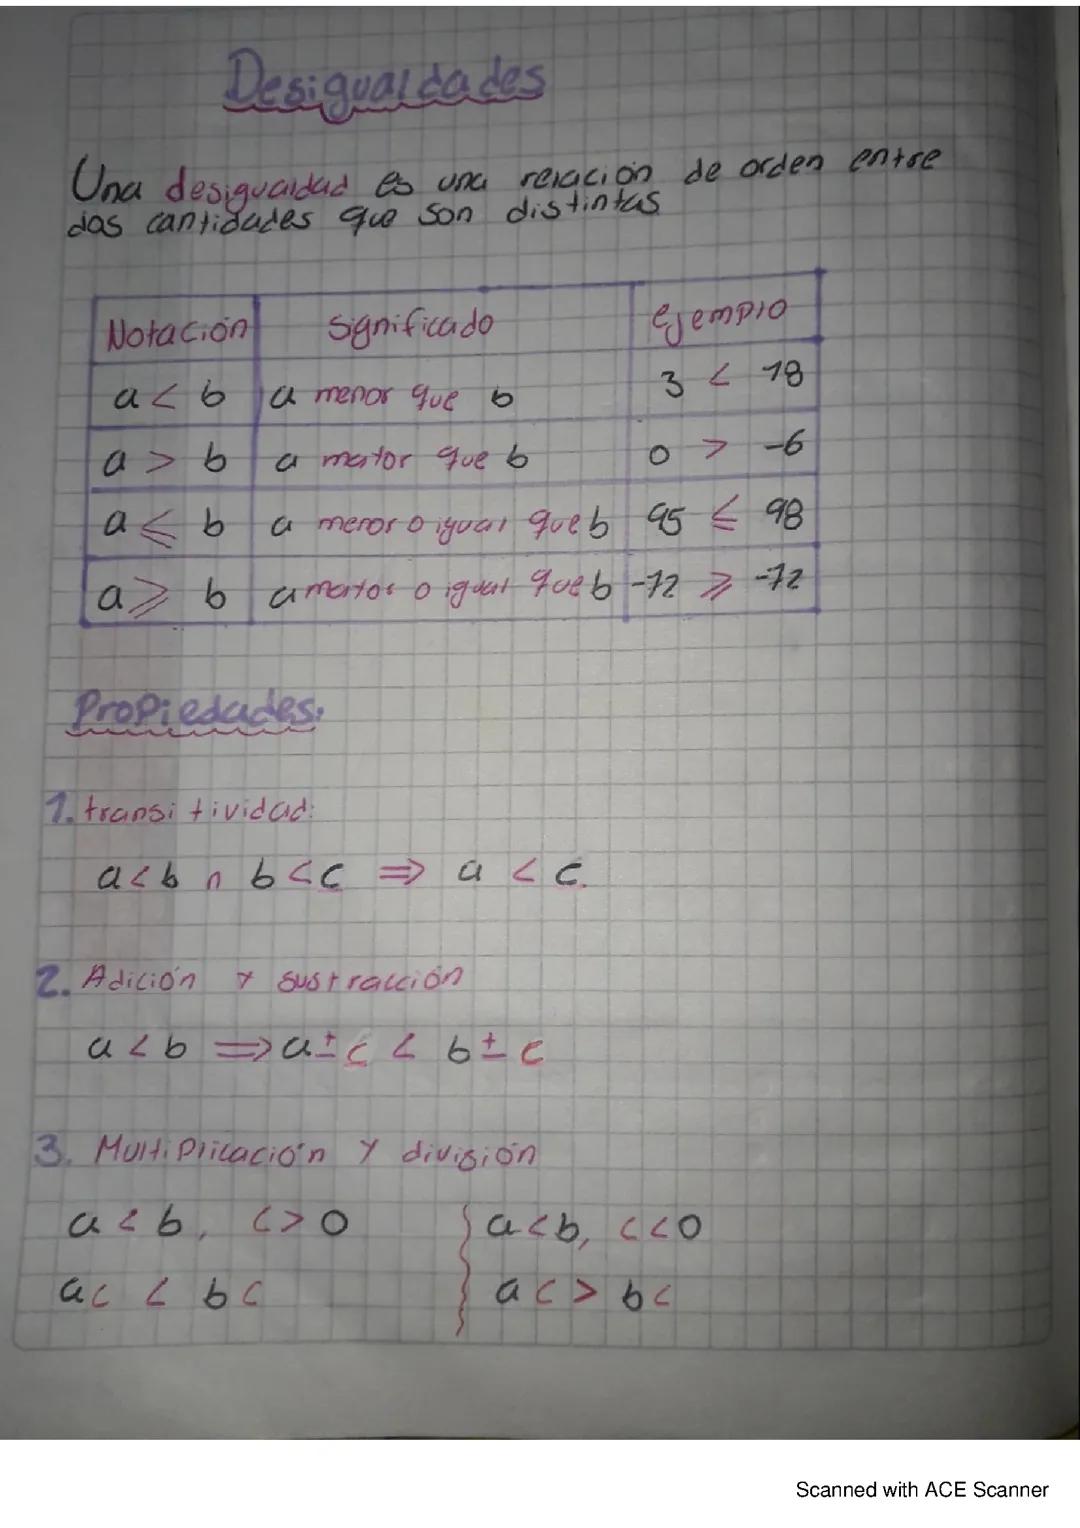 Desigualdades
Una desigualdad es una relación de orden entre
dos cantidades que son distintas
Notación significado ejemplo
a < b a menor que b 3 < 18
a > b a mayor que b 0 > -6
a ⩽ b a menor o igual que b 95 ⩽ 98
a ⩾ b a mayor o igual que b -12 ⩾ -12
Propiedades:
1. transitividad:
a<b ∩ b<c ⇒ a < c.
2. Adición y sustracción
a<b ⇒ a±c < b±c
3. Multiplicación y división
a<b, c>0 a<b, c<0
ac < bc ac > bc
Scanned with ACE Scanner